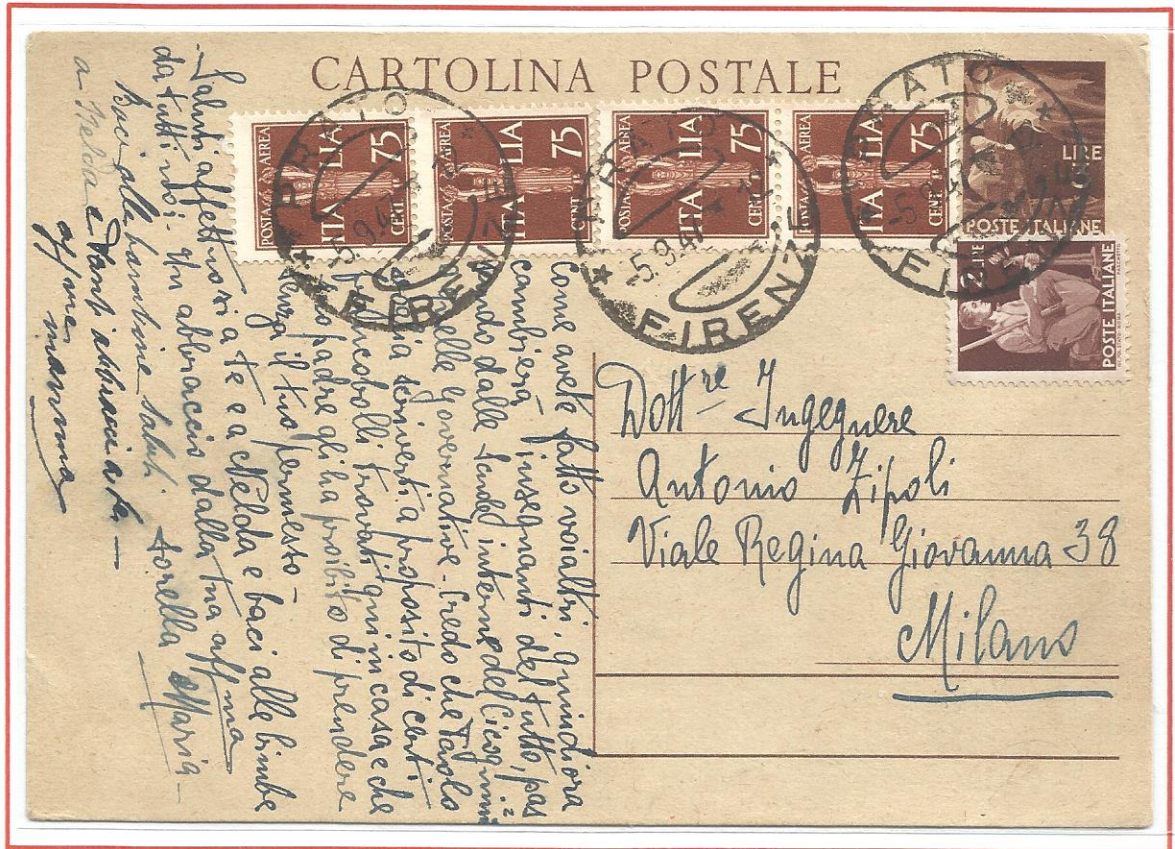 CARTOLINA POSTALE
POSTA AEREA
ITALIA
CENT 75
POSTA AEREA
ITALIA
CENT 75
POSTA AEREA
ITALIA
CENT 75
POSTA AEREA
ITALIA
CENT 75
LIRE
POSTE ITALIANE
2 LIRE
POSTE ITALIANE
PRATO
-5.9.47
FIRENZE
PRATO
-5.9.47
FIRENZE
PRATO
-5.9.47
FIRENZE
Dott.re Ingegnere
Antonio Zipoli
Viale Regina Giovanna 38
Milano
Come avete fatto voialtri. Quindi ora
cambierà insegnanti del tutto, pas
sando dalle Scuole interne del Cicognini
a quelle Governative. Credo che Paolo
scriverti a proposito di certi
francobolli trovati qui in casa e che
padre gli ha proibito di prendere
senza il tuo permesso -
Saluti affettuosi a te e a Nelda e baci alle bimbe
da tutti noi. Un abbraccio dalla tua aff.ma
sorella Maria -
Baci alle bambine saluti
a Nelda e tanti abbracci a te -
aff.me mamma